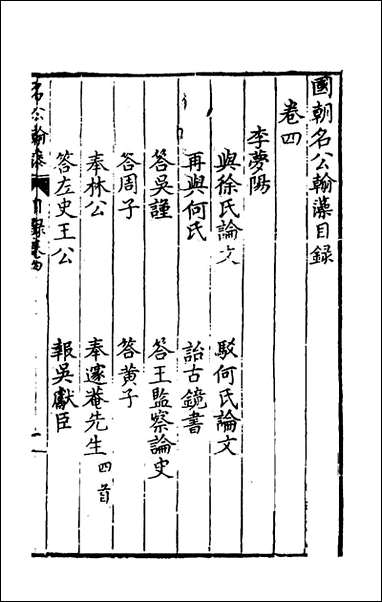 國朝名公翰藻目錄
卷四
李夢陽
與徐氏論文　駁何氏論文
再與何氏　詒古鏡書
答吳謹　答王監察論史
答周子　答黃子
奉林公　奉邃菴先生四首
答左史王公　報吳獻臣
名公翰藻　目錄卷四　一